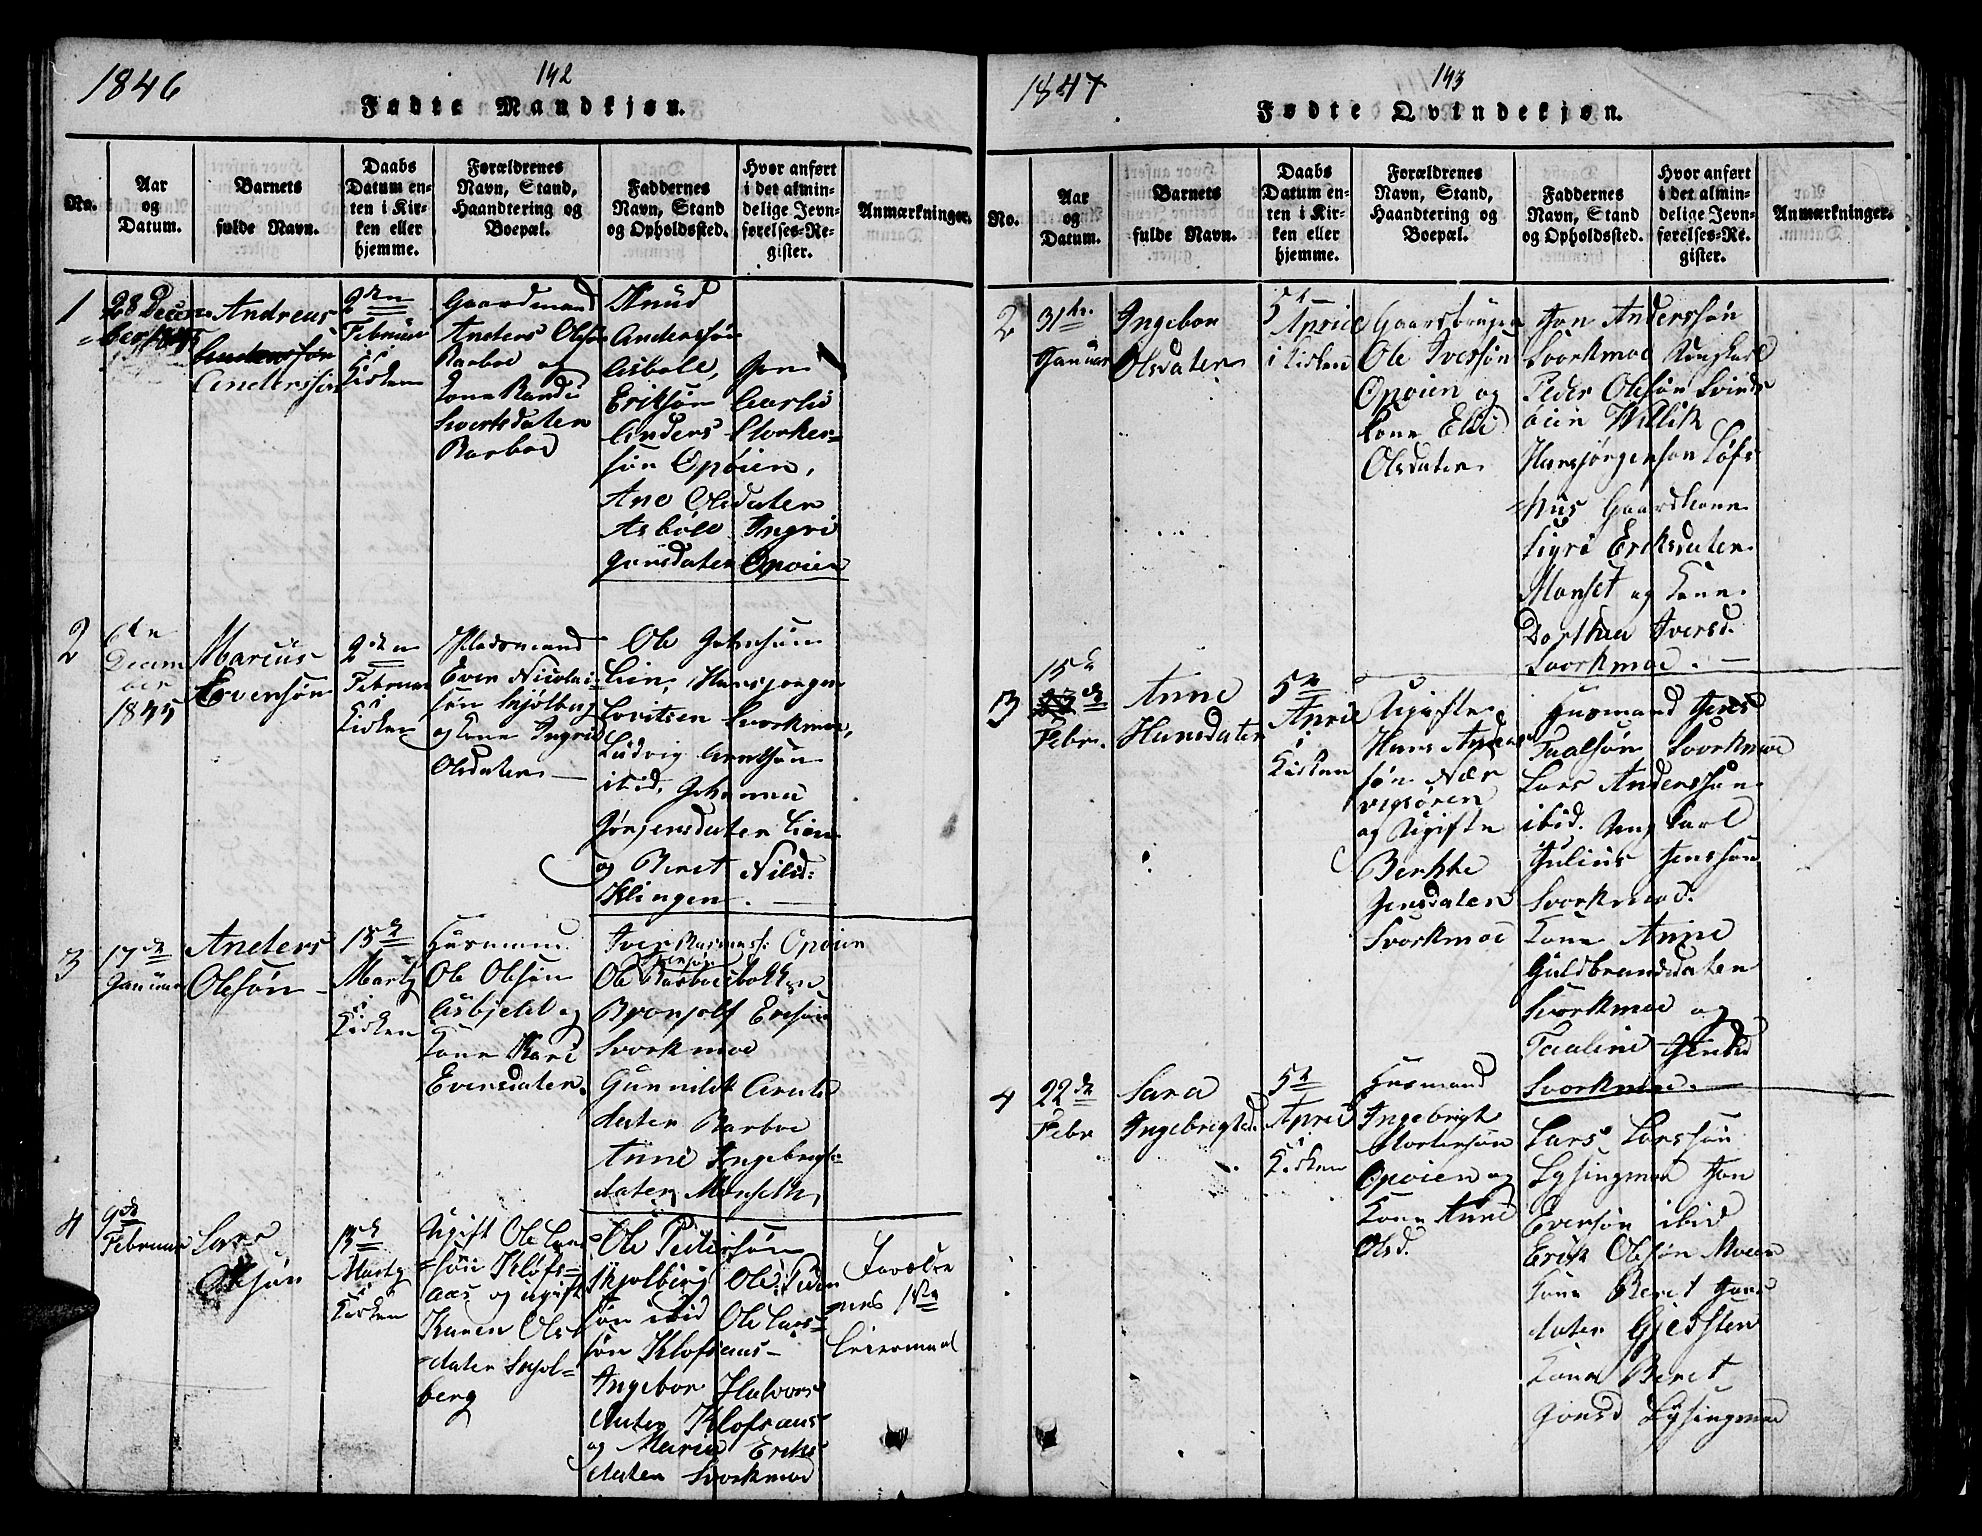 1846
142
Fødte Mandkjøn.
No.
Aar
og
Datum.
Barnets
fulde Navn.
Daabs
Datum en-
ten i Kir-
ken eller
hjemme.
Forældrenes
Navn, Stand,
Haandtering og
Boepæl.
Faddernes
Navn, Stand
og Opholdssted.
Hvor anført
i det almin-
delige Jevn-
førelses-Re-
gister.
Anmærkninger.
1
28 Decem
ber 1845
Andreas
Anderssøn
Anderssøn
2den
Februar
i
Kirken
Gaardmand
Anders Olsøn
Barboe og
Kone Randi
Sivertsdater
Barboe
Knud
Anderssøn
Asbøle, Jon
Eriksøn Aarlie
Anders Storker-
søn Opøien,
Ane Olsdater
Asbøle Ingri
Jonsdater Opøien
2
6te
Decem
ber
1845
Marcus
Evensøn
2den
Februar
i
Kirken
Pladsmand
Even Nicolai-
søn Skjølberg
og Kone Ingrid
Olsdater
Ole Johnsøn
Lien, Hansjørgen
Lovitsen Svorkmoe,
Ludvig Arntsøn
ibid, Johanna
Jørjensdater Lien
og Beret Nilsd:
Klingen.
3
17de
Januar
Anders
Olesøn
15de
Martz
i
Kirken
Husmand
Ole Olsøn
Asbjeld og
Kone Kari
Evensdater.
Iver Rasmuss: Opøien
Ole Barboesbakken
Brønjolf Ericsøn
Svorkmoe
Gunnild Arnts
dater Barboe
Anne Ingebrigts-
dater Monseth
4
9de
Februar
Lars
Olesøn
15de
Martz
i
Kirken
Ugift Ole Lars
søn Kløfs-
aas og ugift
Karen Ols
dater Skjøl-
berg
Ole Pedersøn
Skjølberg Ole Peder
søn ibid Ole Lars-
søn Kløfsaas
Ingebor Halvors
dater Kløfsaas
og Maria Eriks
dater Svorkmoe
Forældre
nes 1ste
Leiermaal
1847
143
Fødte Qvindekjøn.
No.
Aar
og
Datum.
Barnets
fulde Navn.
Daabs
Datum en-
ten i Kir-
ken eller
hjemme.
Forældrenes
Navn, Stand,
Haandtering og
Boepæl.
Faddernes
Navn, Stand
og Opholdssted.
Hvor anført
i det almin-
delige Jevn-
førelses-Re-
gister.
Anmærkninger.
2
31te
Januar
Ingebor
Olsdater
5te
April
i Kirken
Gaarsbruger
Ole Iversøn
Opøien og
Kone Elli
Olsdater
Jon Anderssøn
Svorkmoe Ungkarl
Peder Olesøn Svinds
øien Willik
Hansjørgensøn Løfs
hus Gaardkone
Sigri Eriksdater
Monset og Kone
Dorthea Iversd.
Svorkmoe.
3
15de
Febr.
Anne
Hansdater
5te
April
i
Kirken
Ugifte
Hans Anders
søn Nær
vigsøren
og Ugifte
Berthe
Jensdater
Svorkmoe
Husmand Jens
Paalsøn Svorkmoe
Lars Anderssøn
ibid. Ung karl
Julius Jenssøn
Svorkmoe.
Kone Anne
Guldbrandsdater
Svorkmoe og
Pauline Jensd
Svorkmoe.
4
22de
Febr
Sara
Ingebrigtsd.
5te
April
i
Kirken
Husmand
Ingebrigt
Mortensøn
Opøien og
Kone Anne
Olsd.
Lars Larssøn
Lysingmoe Jon
Eversøn ibid
Erik Olesøn Moen
Kone Beret Jons
dater Gjedsten
Kone Beret
Jonsd Lysingmoe